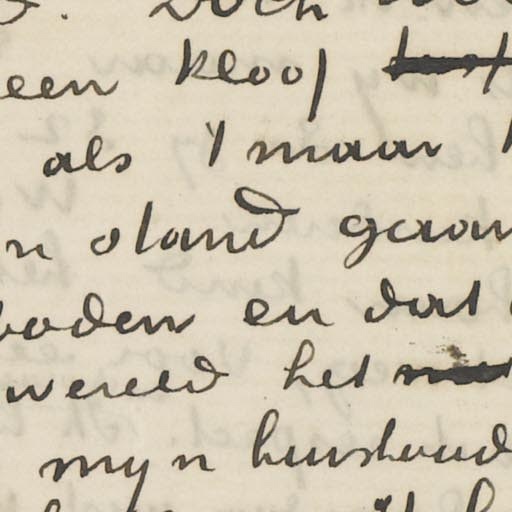 Doch
een kloof
als 't maar
n stand gaan
boden en dat
wereld het
myn huishoud